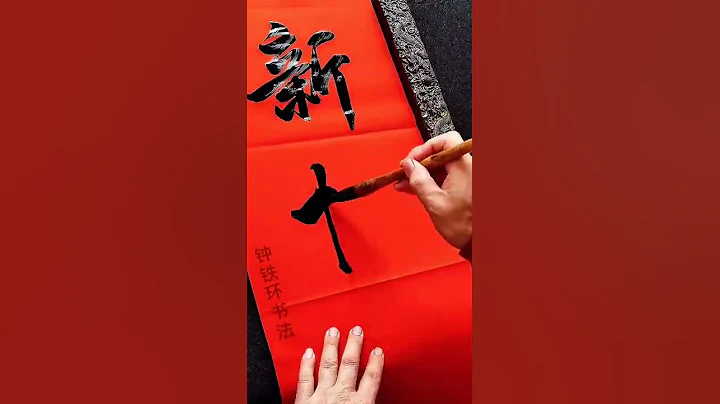 新
十
钟铁环书法